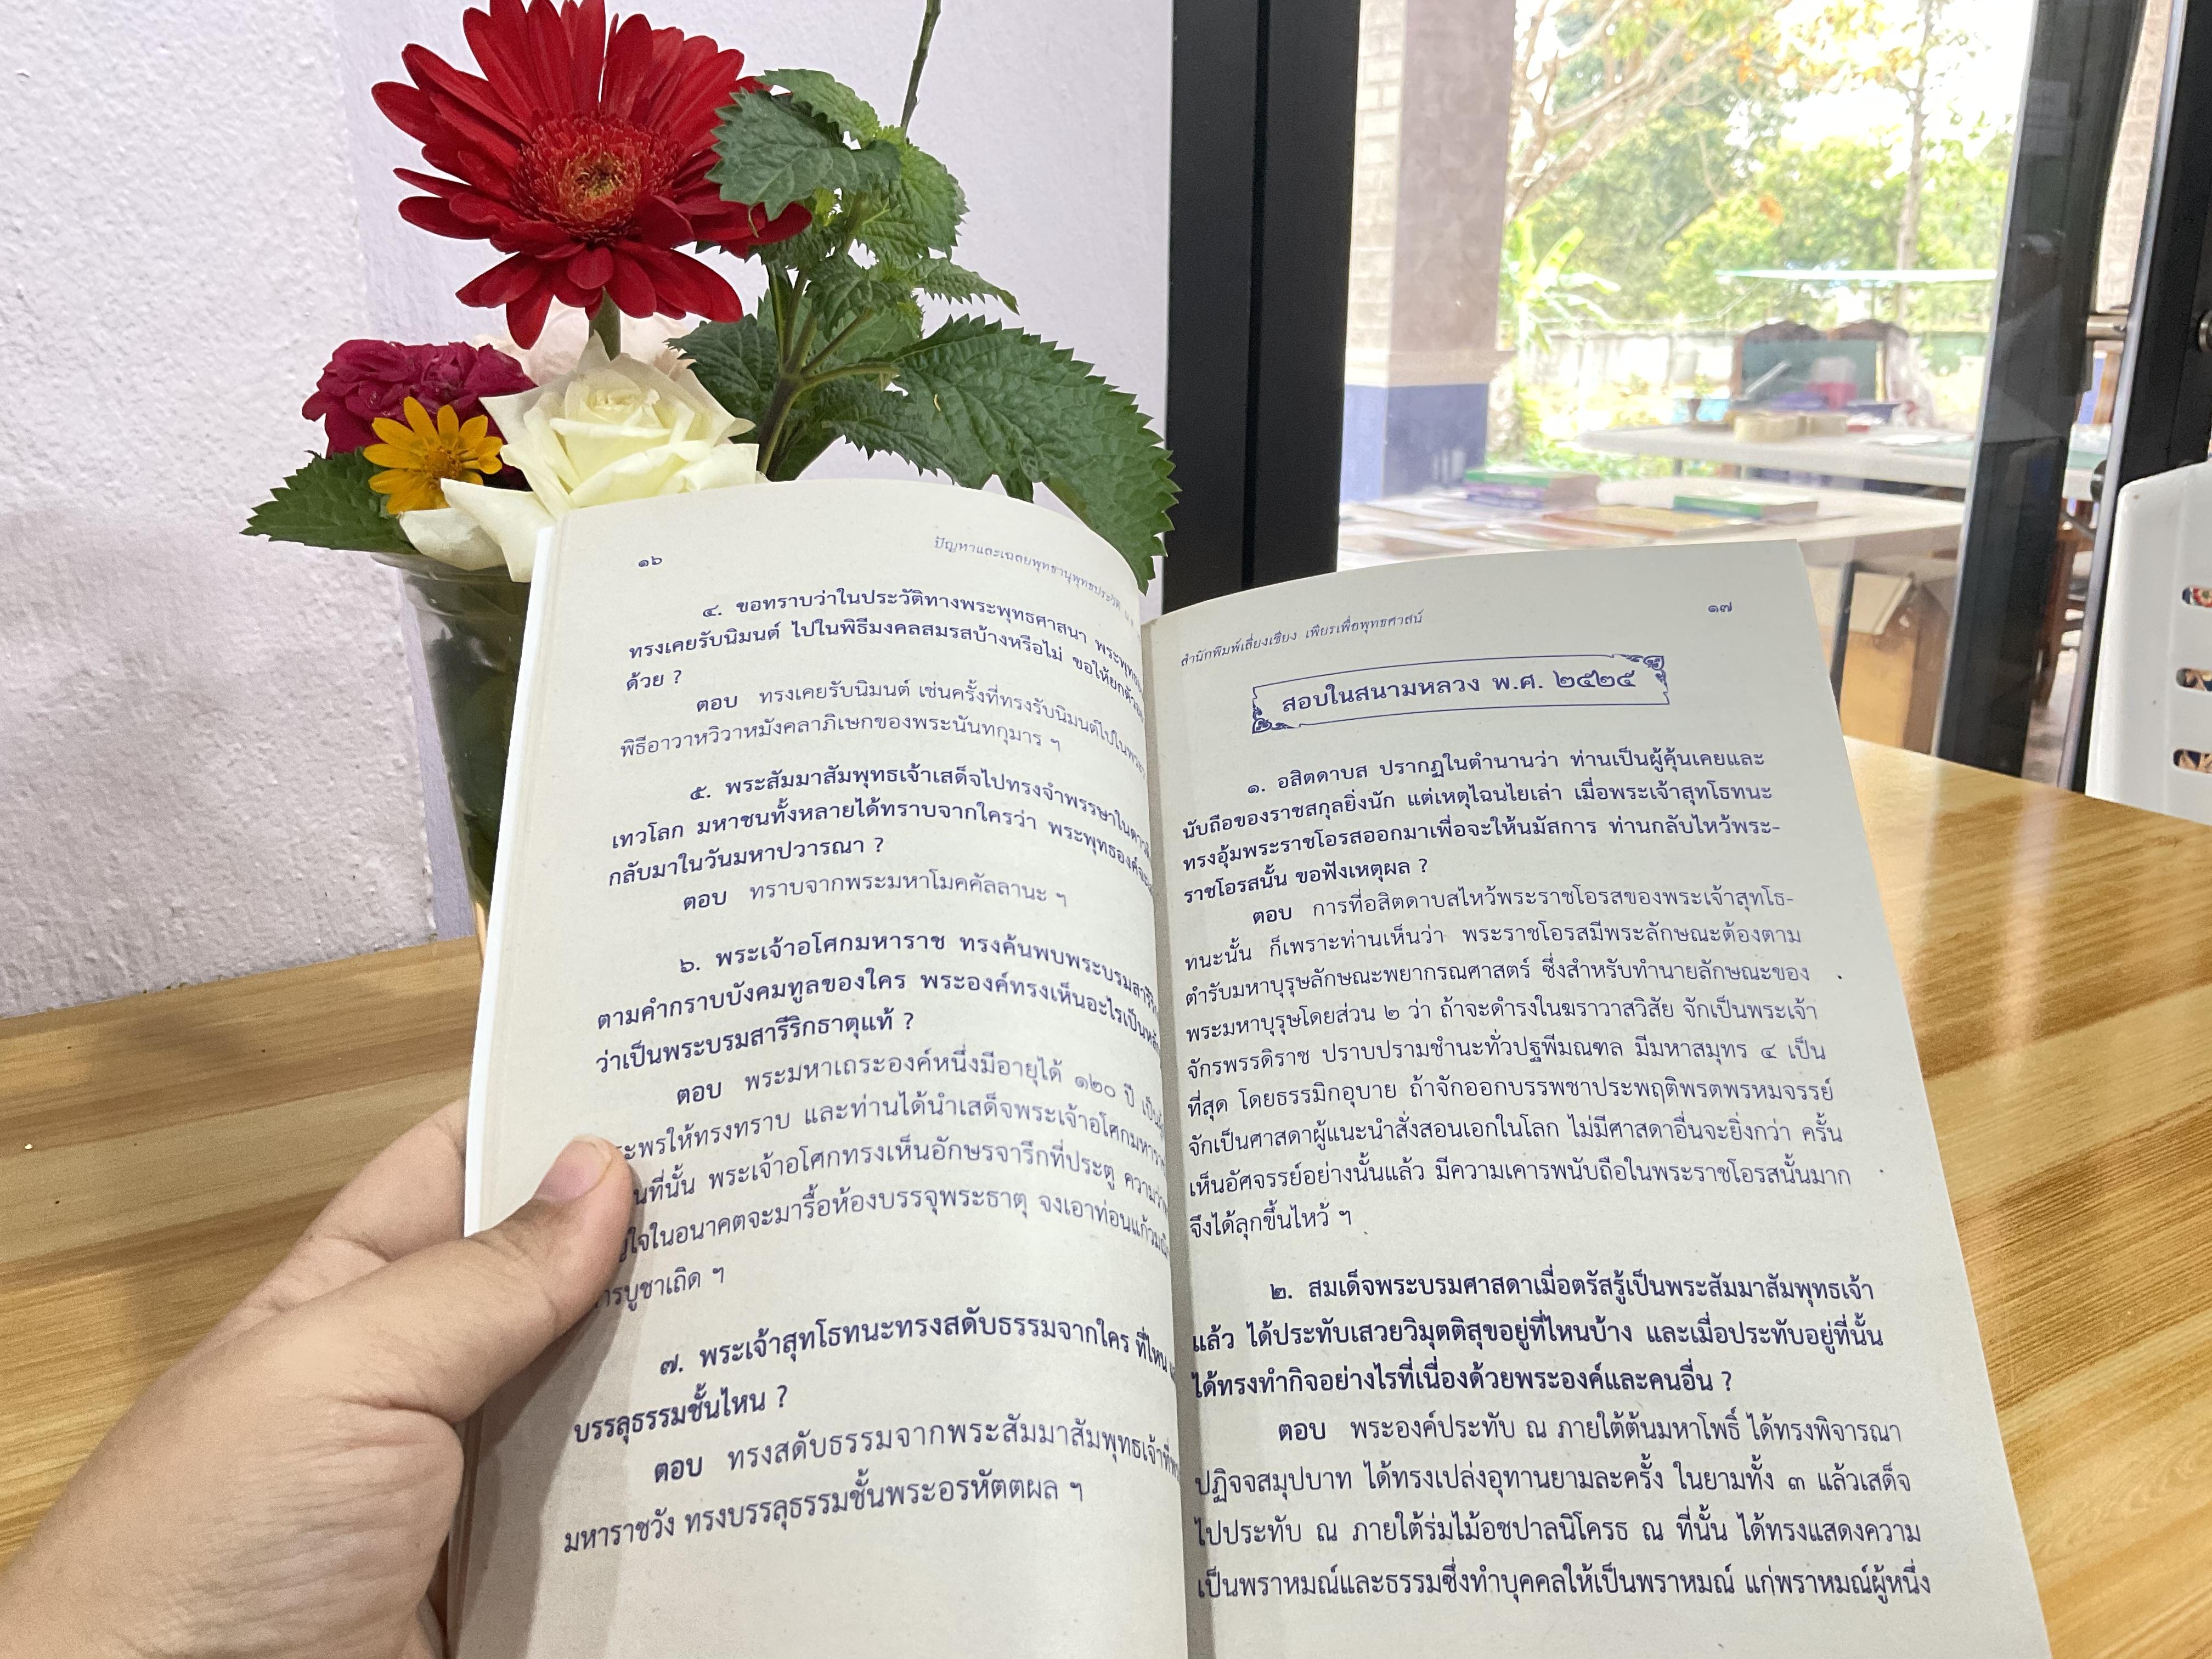 ๑๖
ปัญหาและเฉลยพุทธานุพุทธประวัติ
๔. ขอทราบว่าในประวัติทางพระพุทธศาสนา
ทรงเคยรับนิมนต์ ไปในพิธีมงคลสมรสบ้างหรือไม่
ด้วย ?
ตอบ ทรงเคยรับนิมนต์ เช่นครั้งที่ทรงรับนิมนต์ไปใน
พิธีอาวาหวิวาหมังคลาภิเษกของพระนันทกุมาร ฯ
๕. พระสัมมาสัมพุทธเจ้าเสด็จไปทรงจำพรรษาใน
เทวโลก มหาชนทั้งหลายได้ทราบจากใครว่า
กลับมาในวันมหาปวารณา ?
ตอบ ทราบจากพระมหาโมคคัลลานะ ฯ
๖. พระเจ้าอโศกมหาราช ทรงค้นพบพระบรม
ตามคำกราบบังคมทูลของใคร พระองค์ทรงเห็นอะไรเป็น
ว่าเป็นพระบรมสารีริกธาตุแท้ ?
ตอบ พระมหาเถระองค์หนึ่งมีอายุได้ ๑๒๐ ปี
พรให้ทรงทราบ และท่านได้นำเสด็จพระเจ้าอโศก
ที่นั้น พระเจ้าอโศกทรงเห็นอักษรจารึกที่ประตู
ในอนาคตจะมารื้อห้องบรรจุพระธาตุ จงเอาท่อนแก้ว
บูชาเถิด ฯ
๗. พระเจ้าสุทโธทนะทรงสดับธรรมจากใคร ที่ไหน
บรรลุธรรมชั้นไหน ?
ตอบ ทรงสดับธรรมจากพระสัมมาสัมพุทธเจ้า
มหาราชวัง ทรงบรรลุธรรมชั้นพระอรหัตตผล ฯ
สำนักพิมพ์เลี่ยงเชียง เพียรเพื่อพุทธศาสน์
๑๗
สอบในสนามหลวง พ.ศ. ๒๕๒๕
๑. อสิตดาบส ปรากฏในตำนานว่า ท่านเป็นผู้คุ้นเคยและ
นับถือของราชสกุลยิ่งนัก แต่เหตุไฉนไยเล่า เมื่อพระเจ้าสุทโธทนะ
ทรงอุ้มพระราชโอรสออกมาเพื่อจะให้นมัสการ ท่านกลับไหว้พระ-
ราชโอรสนั้น ขอฟังเหตุผล ?
ตอบ การที่อสิตดาบสไหว้พระราชโอรสของพระเจ้าสุทโธ-
ทนะนั้น ก็เพราะท่านเห็นว่า พระราชโอรสมีพระลักษณะต้องตาม
ตำรับมหาบุรุษลักษณะพยากรณศาสตร์ ซึ่งสำหรับทำนายลักษณะของ
พระมหาบุรุษโดยส่วน ๒ ว่า ถ้าจะดำรงในฆราวาสวิสัย จักเป็นพระเจ้า
จักรพรรดิราช ปราบปรามชำนะทั่วปฐพีมณฑล มีมหาสมุทร ๔ เป็น
ที่สุด โดยธรรมิกอุบาย ถ้าจักออกบรรพชาประพฤติพรตพรหมจรรย์
จักเป็นศาสดาผู้แนะนำสั่งสอนเอกในโลก ไม่มีศาสดาอื่นจะยิ่งกว่า ครั้น
เห็นอัศจรรย์อย่างนั้นแล้ว มีความเคารพนับถือในพระราชโอรสนั้นมาก
จึงได้ลุกขึ้นไหว้ ฯ
๒. สมเด็จพระบรมศาสดาเมื่อตรัสรู้เป็นพระสัมมาสัมพุทธเจ้า
แล้ว ได้ประทับเสวยวิมุตติสุขอยู่ที่ไหนบ้าง และเมื่อประทับอยู่ที่นั้น
ได้ทรงทำกิจอย่างไรที่เนื่องด้วยพระองค์และคนอื่น ?
ตอบ พระองค์ประทับ ณ ภายใต้ต้นมหาโพธิ์ ได้ทรงพิจารณา
ปฏิจจสมุปบาท ได้ทรงเปล่งอุทานยามละครั้ง ในยามทั้ง ๓ แล้วเสด็จ
ไปประทับ ณ ภายใต้ร่มไม้อชปาลนิโครธ ณ ที่นั้น ได้ทรงแสดงความ
เป็นพราหมณ์และธรรมซึ่งทำบุคคลให้เป็นพราหมณ์ แก่พราหมณ์ผู้หนึ่ง